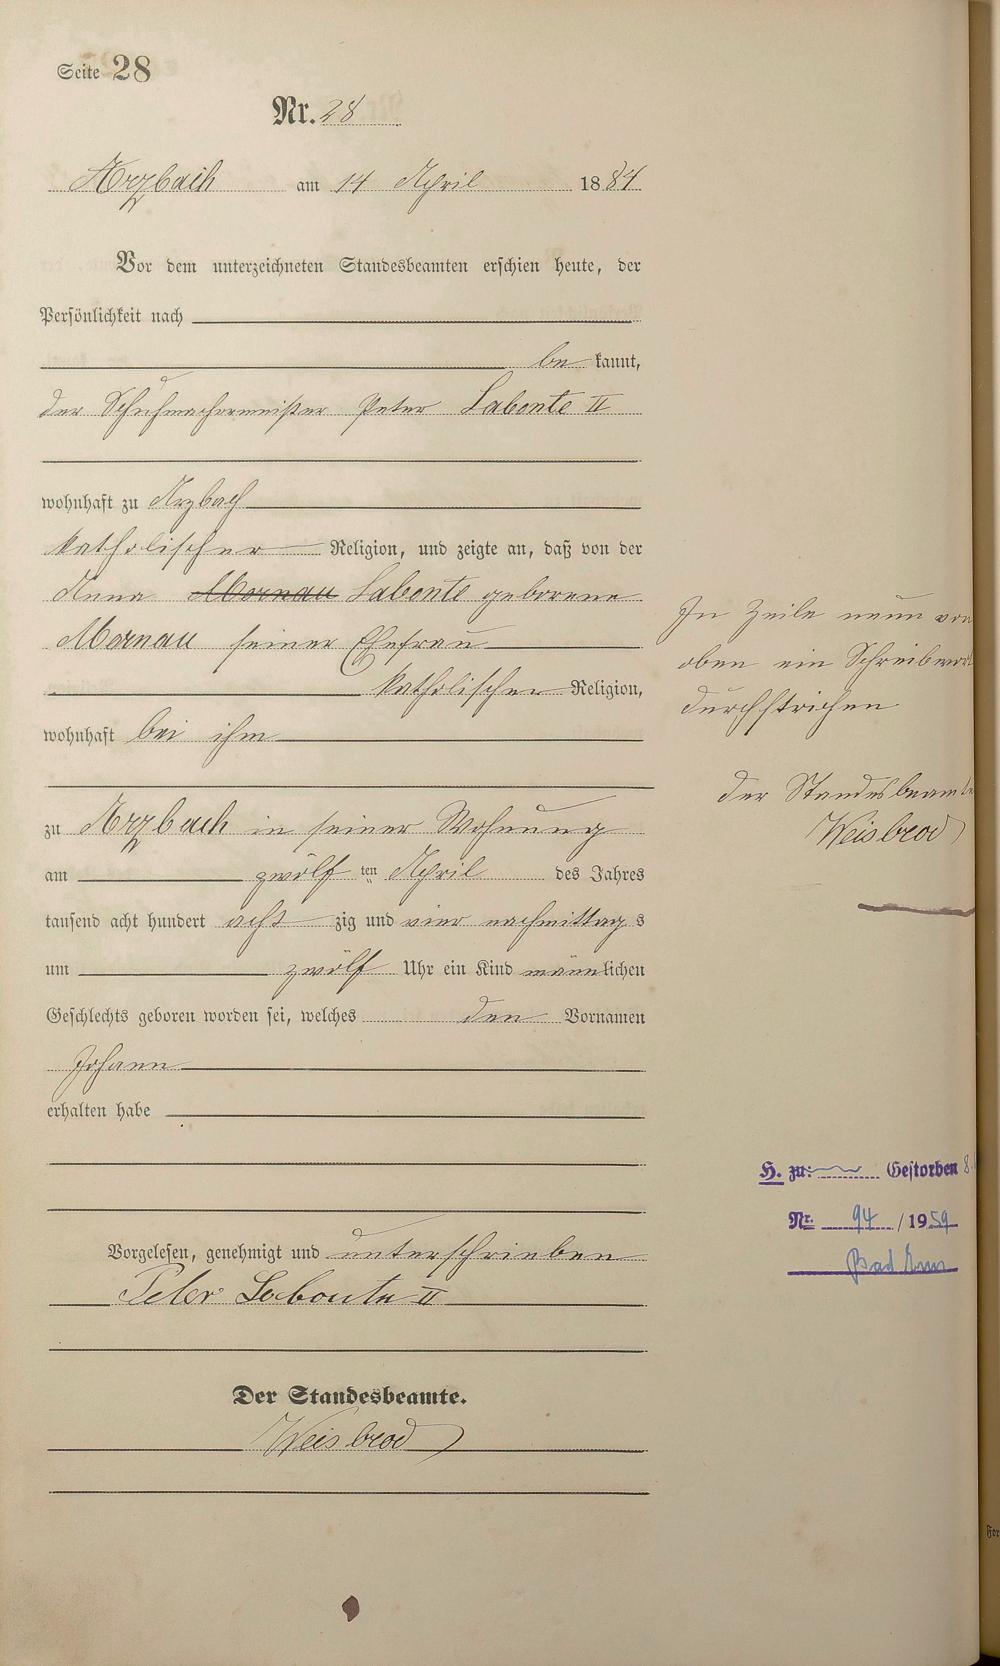 Seite 28
Nr. 28
Arzbach am 14 April 1884
Vor dem unterzeichneten Standesbeamten erschien heute, der
Persönlichkeit nach
be kannt,
der Schuhmachermeister Peter Labonte II
wohnhaft zu Arzbach
katholischer Religion, und zeigte an, daß von der
Anna Mornau Labonte geborene
Mornau seiner Ehefrau
katholischer Religion,
wohnhaft bei ihm
zu Arzbach in seiner Wohnung
am zwölf ten April des Jahres
tausend acht hundert acht zig und vier nachmittag s
um zwölf Uhr ein Kind männlichen
Geschlechts geboren worden sei, welches den Vornamen
Johann
erhalten habe
Vorgelesen, genehmigt und unterschrieben
Peter Labonte II
Der Standesbeamte.
Weisbrod
In Zeile neun von
oben ein Schreibwort
durchstrichen
der Standesbeamte
Weisbrod
H. zu: Gestorben 8.
Nr. 94 / 1959
Bad Ems